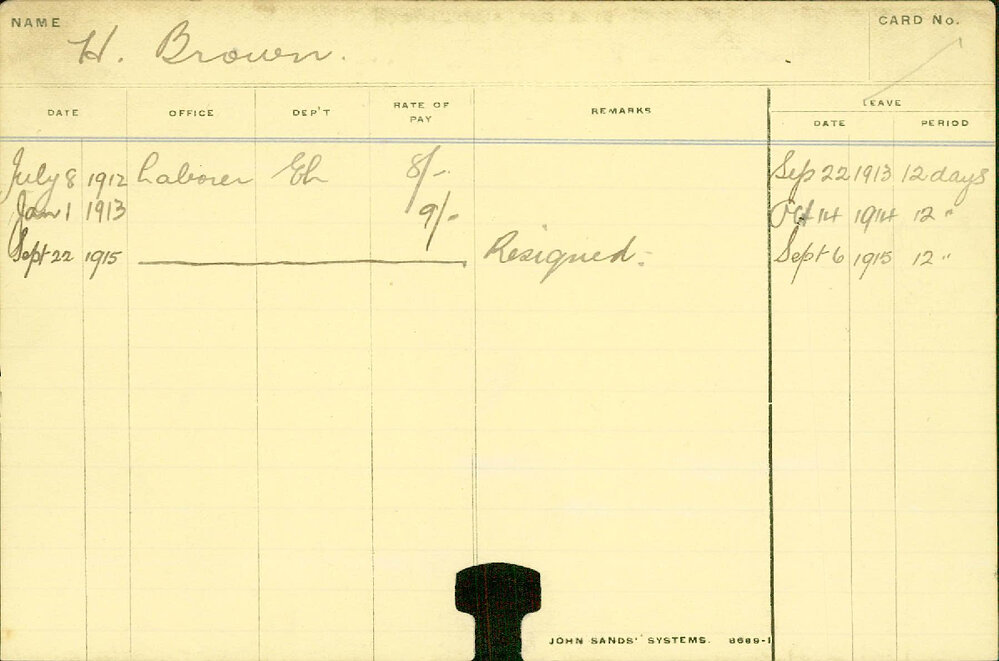 NAME H. Brown. CARD No.
DATE OFFICE DEP'T RATE OF PAY REMARKS LEAVE DATE PERIOD
July 8 1912 Laborer Eh 8/- Sep 22 1913 12 days
Jan 1 1913 9/- Oct 14 1914 12 "
Sept 22 1915 Resigned. Sept 6 1915 12 "
JOHN SANDS' SYSTEMS. 8689-1